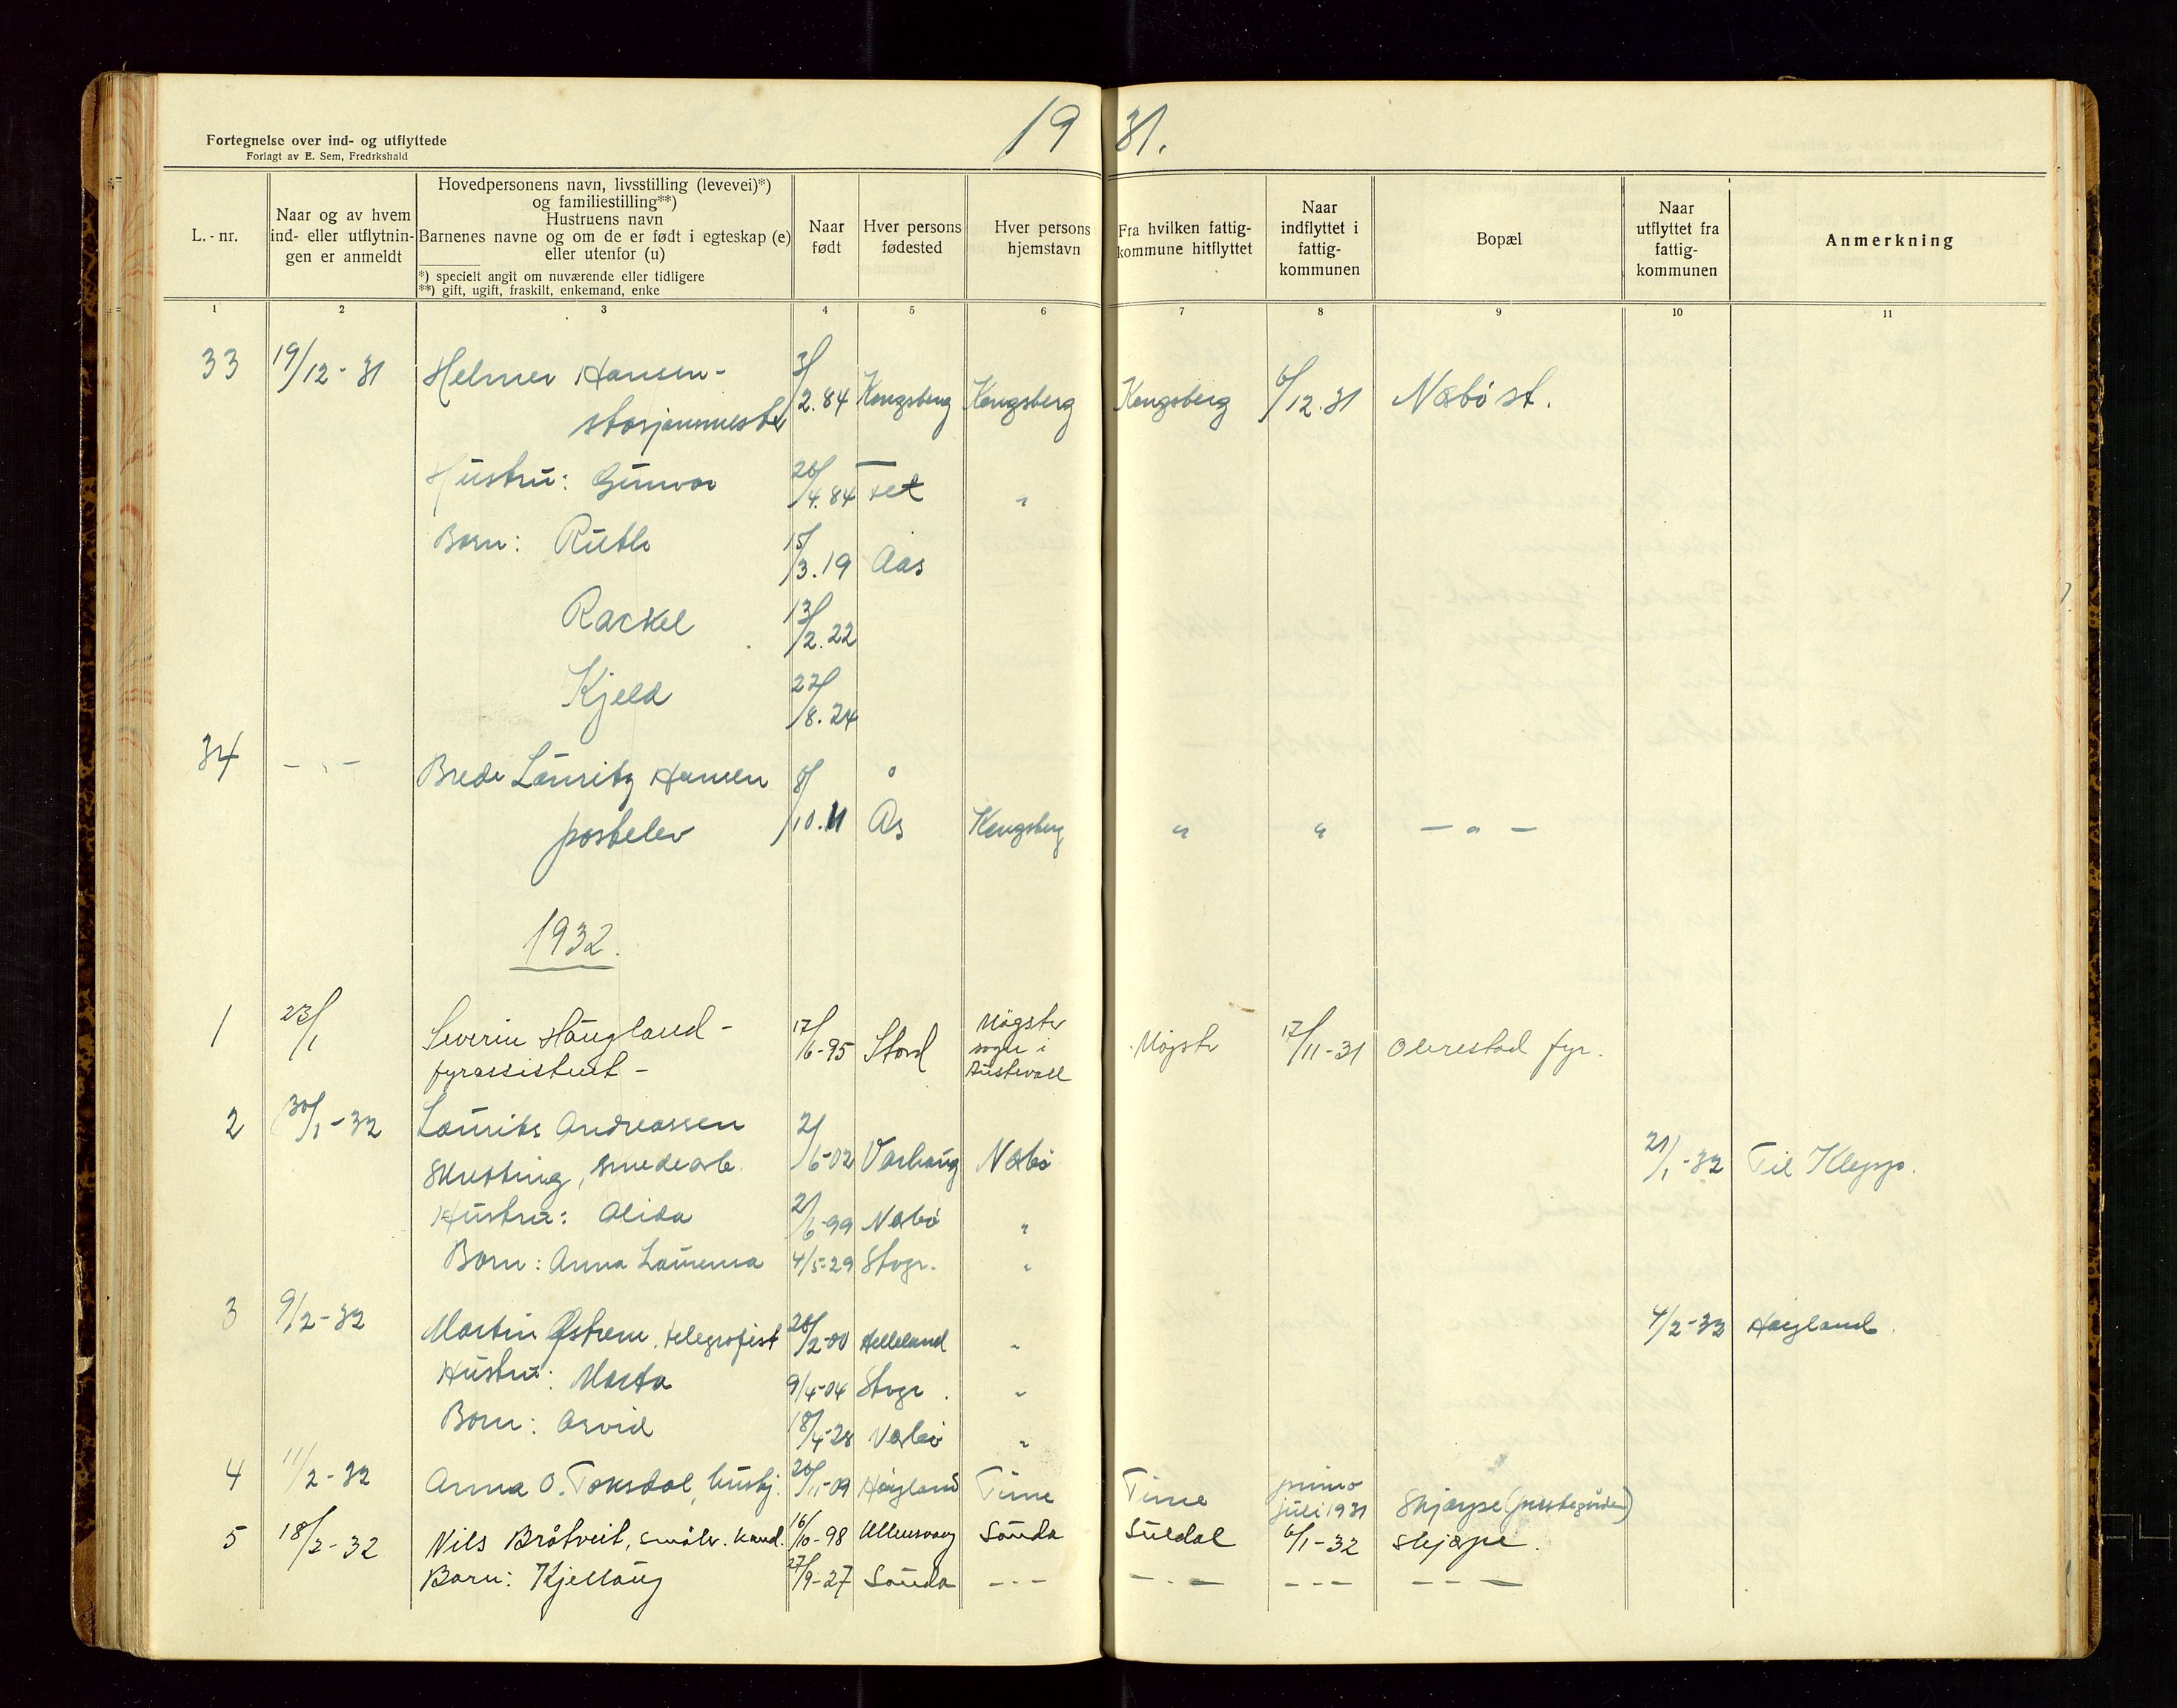 19 31.
Fortegnelse over ind- og utflyttede
Forlagt av E. Sem, Fredrkshald
L.-nr.
Naar og av hvem
ind- eller utflytnin-
gen er anmeldt
Hovedpersonens navn, livsstilling (levevei)*)
og familiestilling**)
Hustruens navn
Barnenes navne og om de er født i egteskap (e)
eller utenfor (u)
*) specielt angit om nuværende eller tidligere
**) gift, ugift, fraskilt, enkemand, enke
Naar
født
Hver persons
fødested
Hver persons
hjemstavn
Fra hvilken fattig-
kommune hitflyttet
Naar
indflyttet i
fattig-
kommunen
Bopæl
Naar
utflyttet fra
fattig-
kommunen
Anmerkning
1 2 3 4 5 6 7 8 9 10 11
33 19/12-31 Helmer Hansen- 3/2.84 Kongsberg Kongsberg Kongsberg 6/12.31 Nærbø st.
stasjonsmester
Hustru: Gunvor 26/4.84 Fet "
Born: Ruth 15/3.19 Aas
Rackel 13/2.22
Kjeld 27/8.24
34 - " - Brede Lauritz Hansen 8/10.11 Ås Kongsberg " " - " -
postelev
1932.
1 23/1 Severin Haugland- 17/6-95 Stord Møgster sogn i Austevoll Møgstr 17/11-31 Obrestad fyr.
fyrassistent-
2 30/1-32 Laurits Andreassen 2/6-02 Varhaug Nærbø 21/1-32 Til Klepp.
Skretting, smedearb.
Hustru: Alida 2/6-99 Nærbø "
Born: Anna Laurensa 4/5-29 Stvgr. "
3 9/2-32 Martin Østrem, telegrafist 26/2-00 Helleland " 4/2-32 Høyland.
Hustru: Marta 9/4-04 Stvgr. "
Born: Arvid 18/4-28 Nærbø "
4 11/2-32 Anna O. Tonsdal, hushj. 26/11-09 Høyland Time Time primo juli 1931 Skjærpe (prestegården)
5 18/2-32 Nils Bråtveit, småbr. kand. 16/10-98 Ullensvang Sauda Suldal 6/1-32 Skjærpe.
Barn: Kjellaug 27/9-27 Sauda - " - - " - - " - - " -